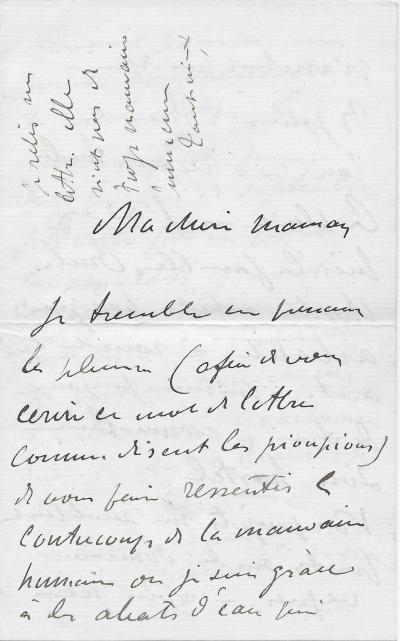 je relis ma
lettre elle
n'est pas de
trop mauvaise
humeur
Ma chère maman
Je tremble en prenant
la plume (afin de vous
écrire ce mot de lettre
comme disent les pioupious)
de vous faire ressentir le
contrecoup de la mauvaise
humeur où je suis grâce
à des achats d'eau qui